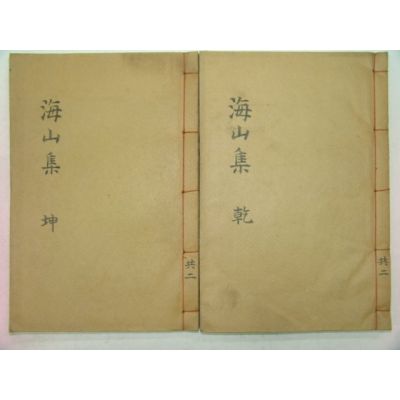 海山集 乾
共二
海山集 坤
共二